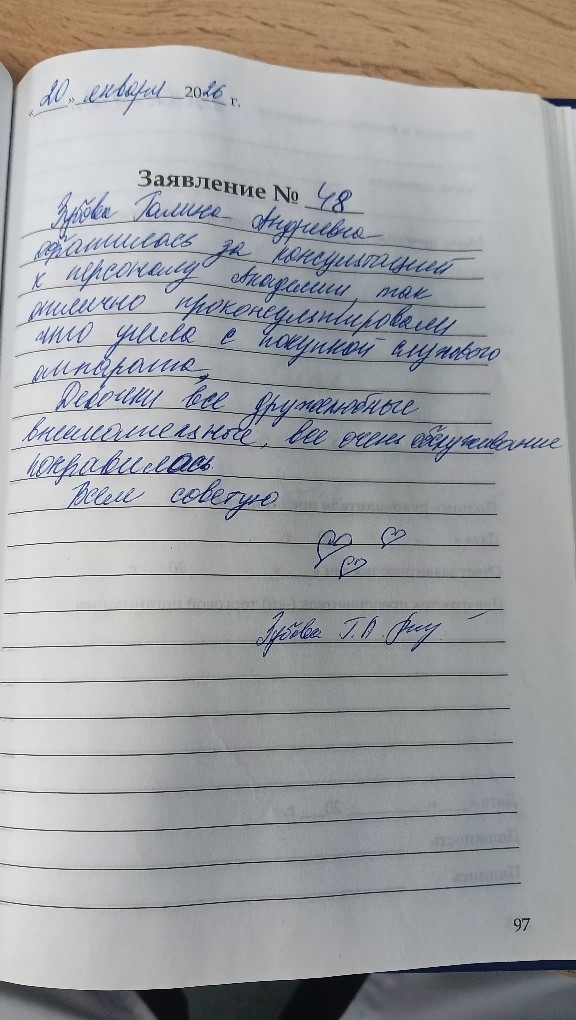 «20» января 2026 г.
Заявление № 48
Зубова Галина Андреевна
обратилась за консультацией
к персоналу Академии, так
отлично проконсультировали
что ушла с покупкой слухового
аппарата,
Девочки все дружелюбные
внимательные, все очень обслуживание
понравилось
Всем советую
Зубова Г.А.
97